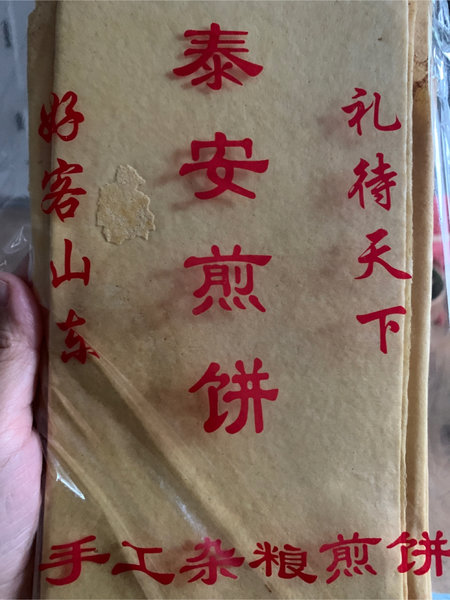 泰安煎饼
礼待天下
好客山东
手工杂粮煎饼